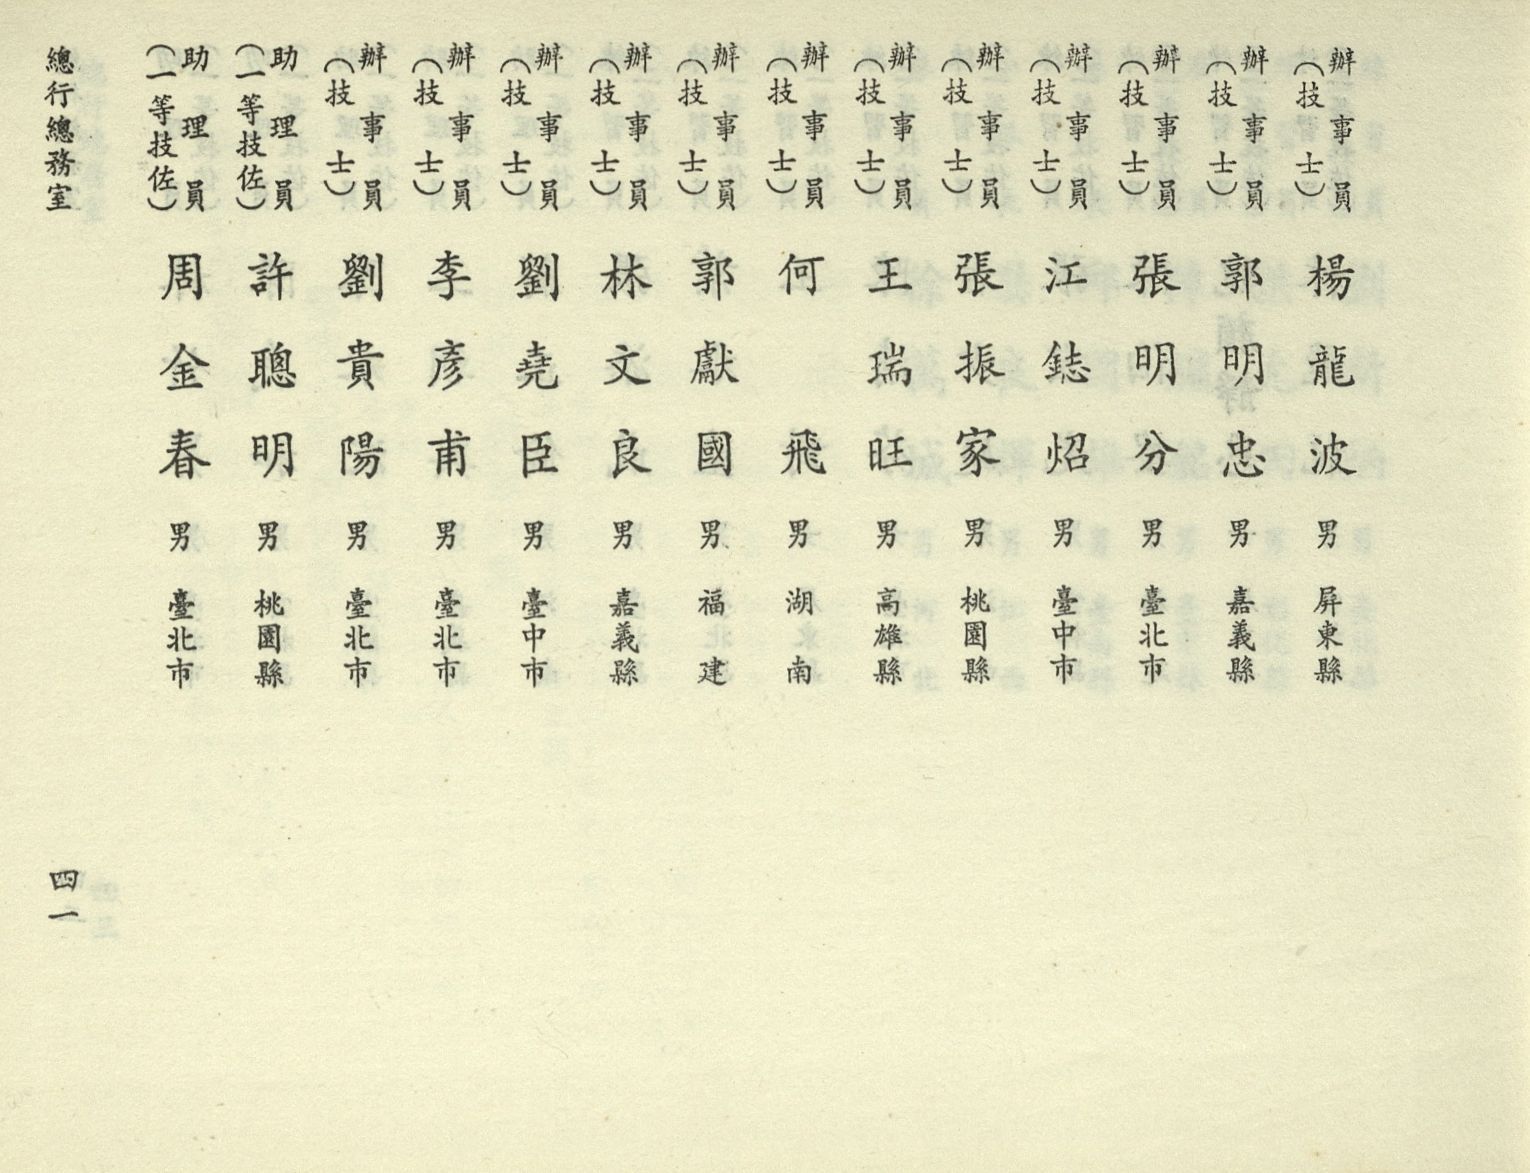 辦事員（技士） 楊龍波 男 屏東縣
辦事員（技士） 郭明忠 男 嘉義縣
辦事員（技士） 張明分 男 臺北市
辦事員（技士） 江鋕炤 男 臺中市
辦事員（技士） 張振家 男 桃園縣
辦事員（技士） 王瑞旺 男 高雄縣
辦事員（技士） 何飛 男 湖南
辦事員（技士） 郭獻國 男 福建
辦事員（技士） 林文良 男 嘉義縣
辦事員（技士） 劉堯臣 男 臺中市
辦事員（技士） 李彥甫 男 臺北市
辦事員（技士） 劉貴陽 男 臺北市
助理員（一等技佐） 許聰明 男 桃園縣
助理員（一等技佐） 周金春 男 臺北市
總行總務室
四一